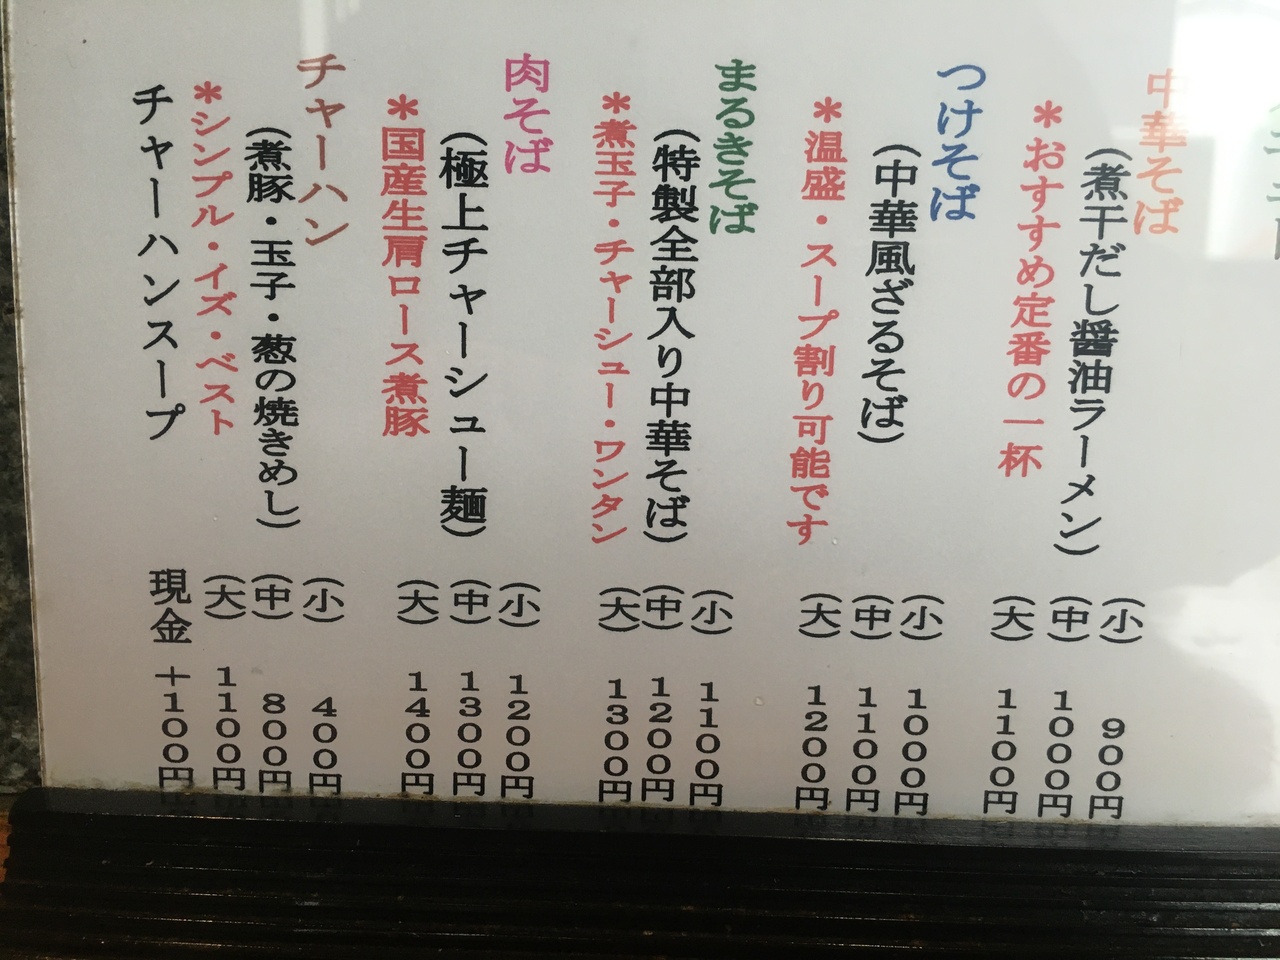 中華そば
（煮干だし醤油ラーメン）
＊おすすめ定番の一杯
（小）　９００円
（中）　１０００円
（大）　１１００円
つけそば
（中華風ざるそば）
＊温盛・スープ割り可能です
（小）　１０００円
（中）　１１００円
（大）　１２００円
まるきそば
（特製全部入り中華そば）
＊煮玉子・チャーシュー・ワンタン
（小）　１１００円
（中）　１２００円
（大）　１３００円
肉そば
（極上チャーシュー麺）
＊国産生肩ロース煮豚
（小）　１２００円
（中）　１３００円
（大）　１４００円
チャーハン
（煮豚・玉子・葱の焼きめし）
＊シンプル・イズ・ベスト
（小）　４００円
（中）　８００円
（大）　１１００円
チャーハンスープ　現金＋１００円